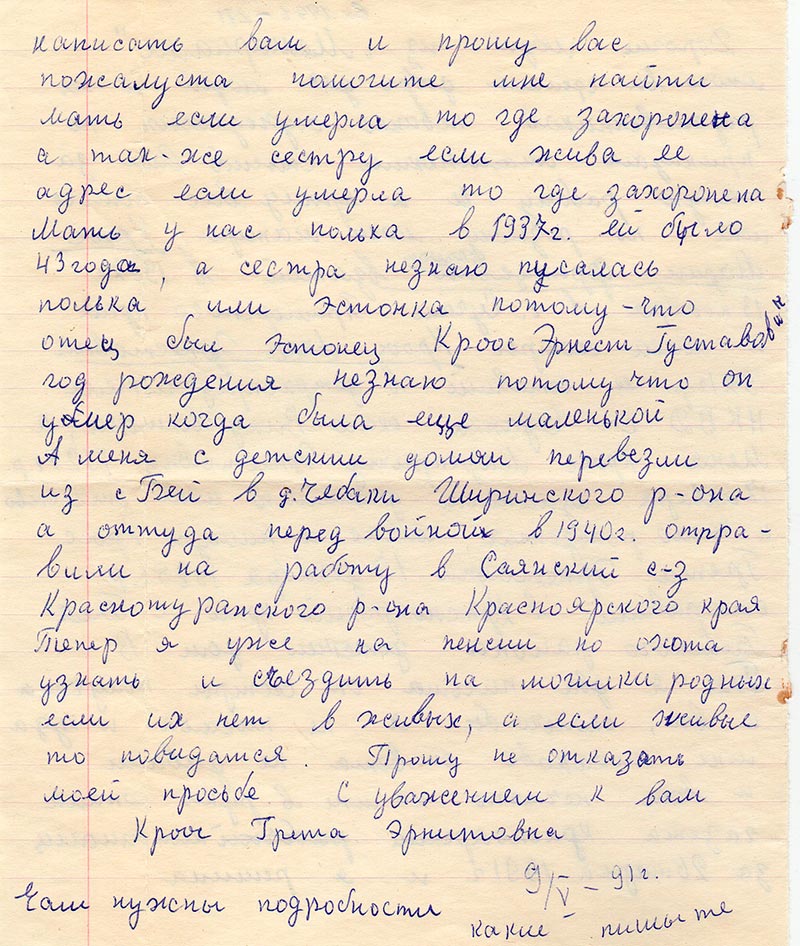 написать вам и прошу вас
пожалуста помогите мне найти
мать если умерла то где захоронена
а так-же сестру если жива ее
адрес если умерла то где захоронена
Мать у нас полька в 1937г. ей было
43 года, а сестра незнаю писалась
полька или эстонка потому-что
отец был эстонец Кроос Эрнест Густавович
год рождения незнаю потому что он
умер когда была еще маленькой
А меня с детским домом перевезли
из с Беи в д. Чебаки Ширинского р-она
а оттуда перед войной в 1940г. отпра-
вили на работу в Саянский с-з
Краснотуранского р-она Красноярского края
Тепер я уже на пенсии но охота
узнать и съездить на могилки родных
если их нет в живых, а если живые
то повидатся. Прошу не отказать
моей просьбе С уважением к вам
Кроос Грета Эрнитовна
9/V – 91г.
Чам нужны подробности
какие – пишыте